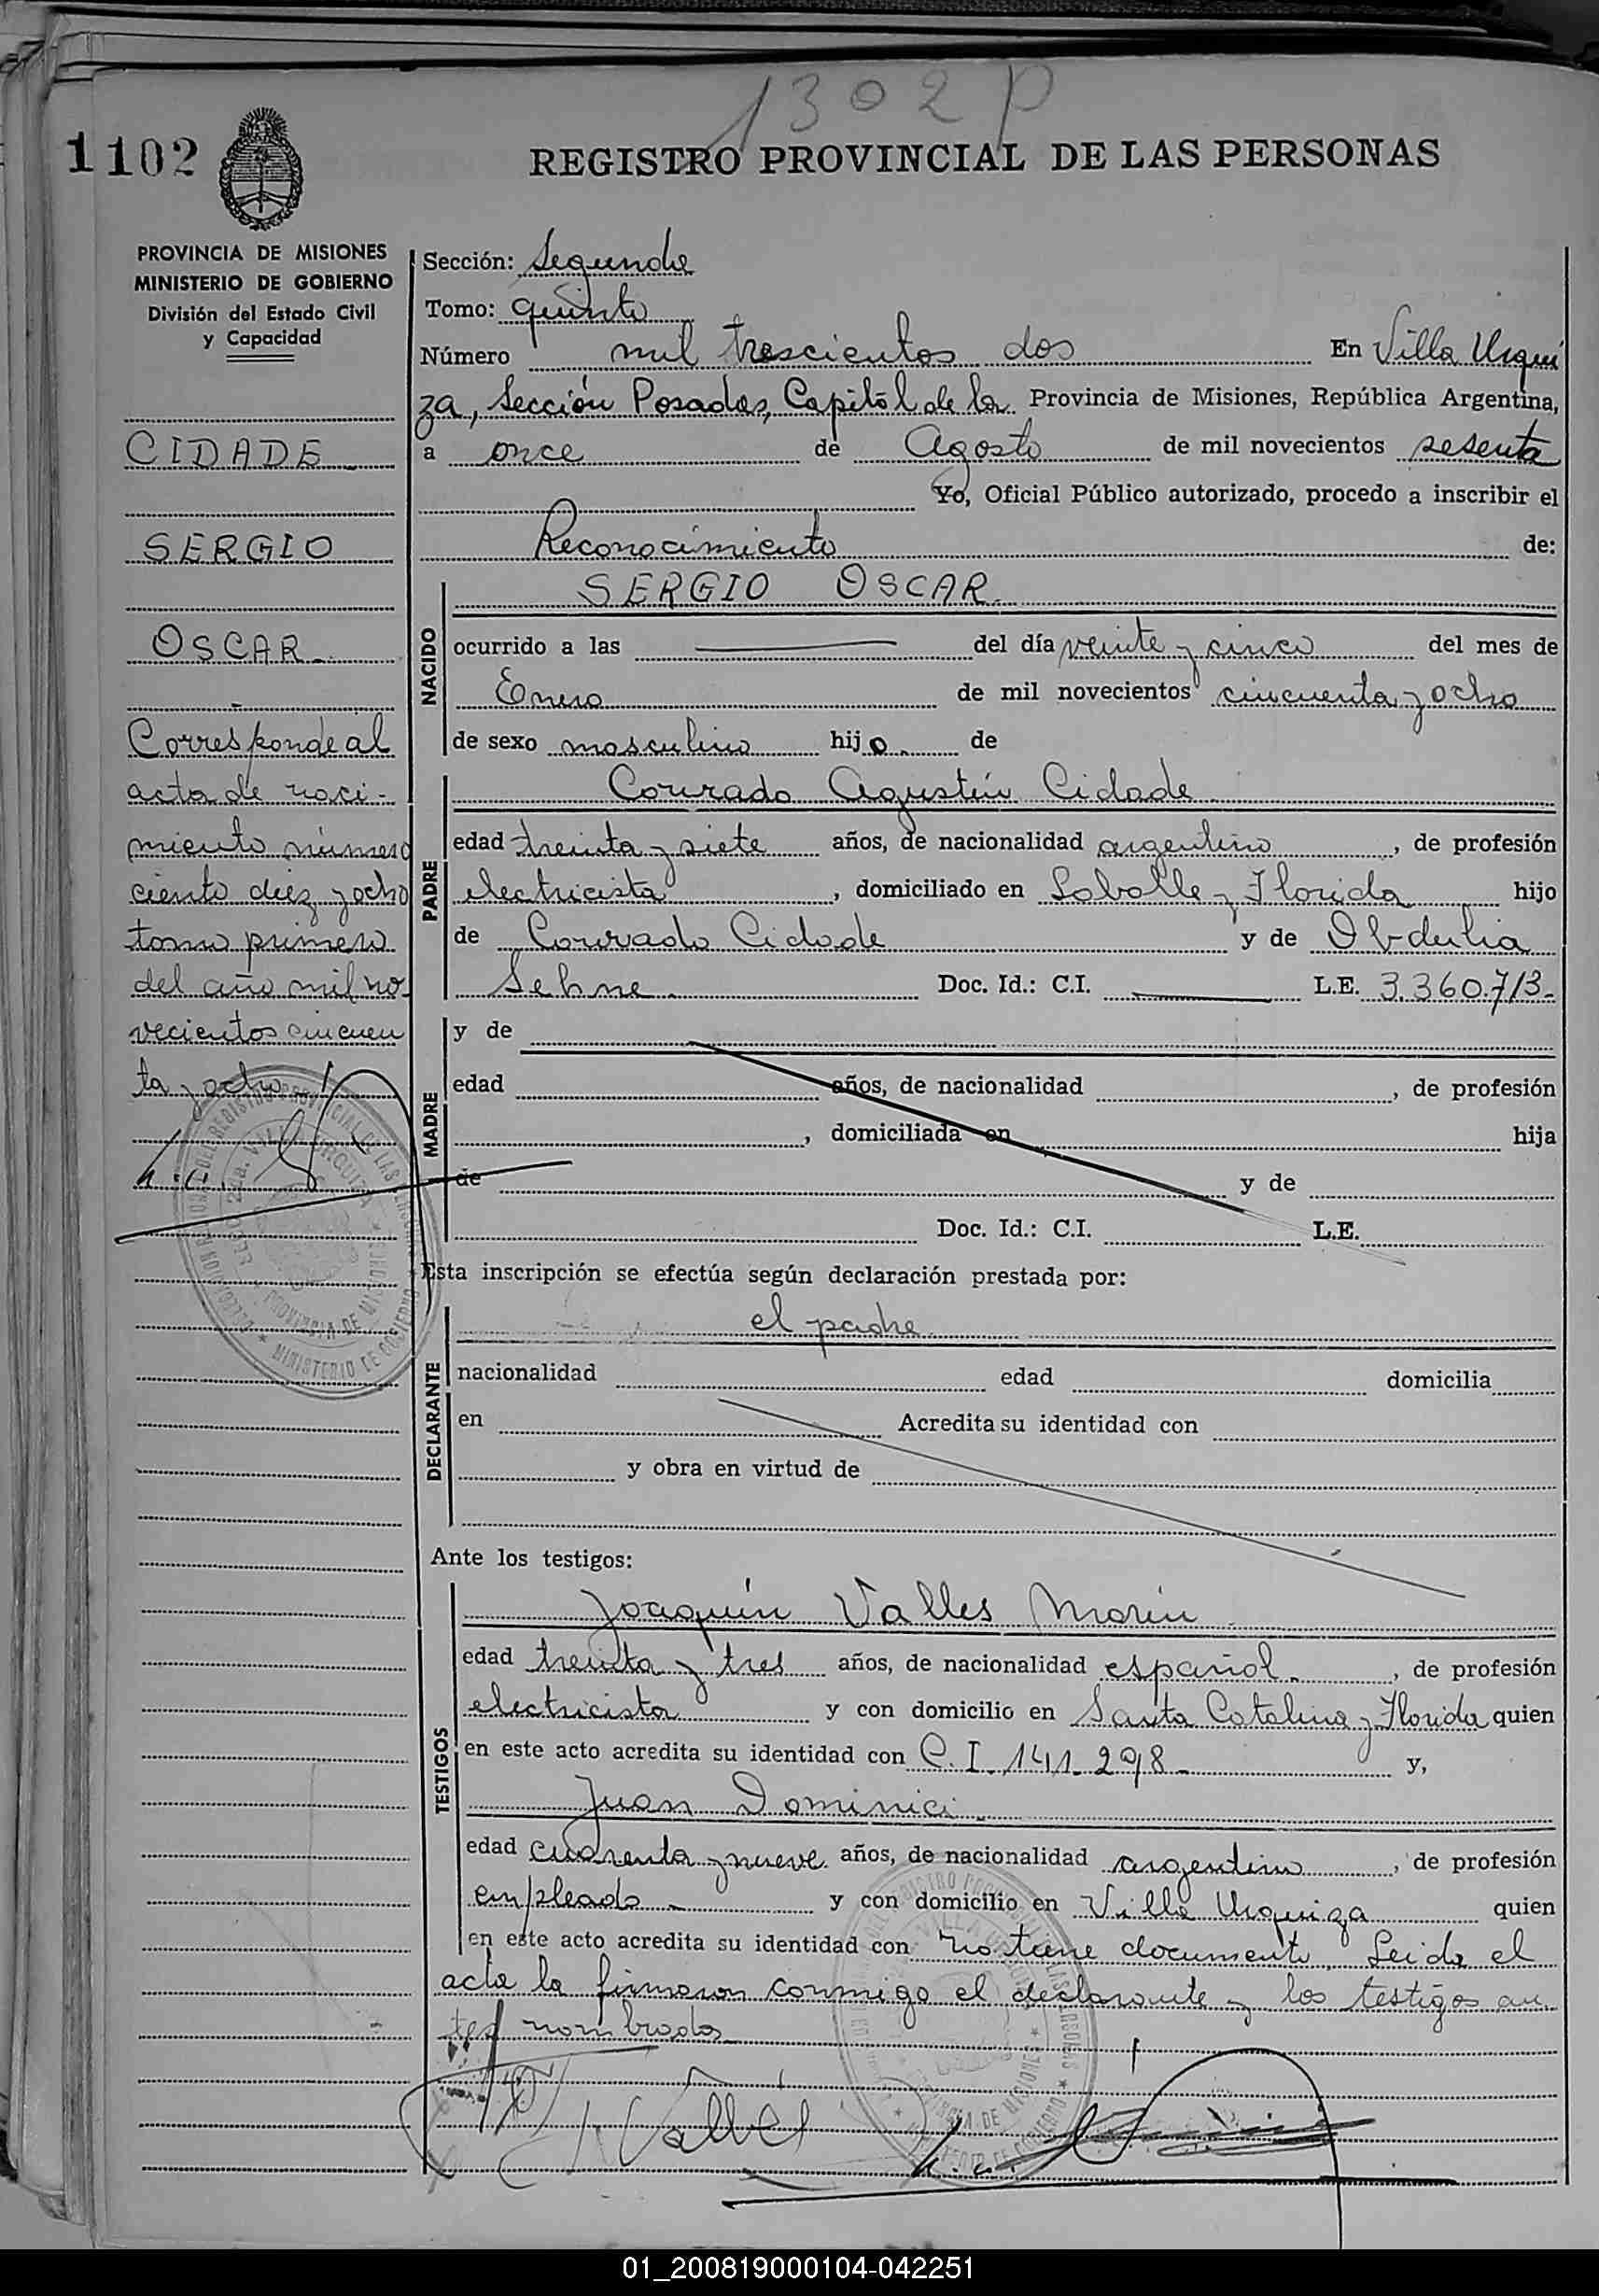 1302 P
1102
REGISTRO PROVINCIAL DE LAS PERSONAS
PROVINCIA DE MISIONES
MINISTERIO DE GOBIERNO
División del Estado Civil
y Capacidad
CIDADE
SERGIO
OSCAR
Corresponde al
acta de naci-
miento número
ciento diez y ocho
tomo primero
del año mil no-
vecientos cincuen
ta y ocho
Sección: Segunda
Tomo: quinto
Número mil trescientos dos En Villa Urqui
za, Sección Posadas, Capital de la Provincia de Misiones, República Argentina,
a once de Agosto de mil novecientos sesenta
Yo, Oficial Público autorizado, procedo a inscribir el
Reconocimiento de:
NACIDO
SERGIO OSCAR
ocurrido a las del día veinte y cinco del mes de
Enero de mil novecientos cincuenta y ocho
de sexo masculino hijo de
PADRE
Conrado Agustín Cidade
edad treinta y siete años, de nacionalidad argentino, de profesión
electricista, domiciliado en y Florida hijo
de Conrado Cidade y de Obdulia
Doc. Id.: C.I. L.E. 3.360.713-
MADRE
y de
edad años, de nacionalidad , de profesión
, domiciliada en hija
de y de
Doc. Id.: C.I. L.E.
Esta inscripción se efectúa según declaración prestada por:
DECLARANTE
el padre
nacionalidad edad domicilia
en Acredita su identidad con
y obra en virtud de
Ante los testigos:
TESTIGOS
Joaquín Valles Morin
edad treinta y tres años, de nacionalidad español, de profesión
electricista y con domicilio en Santa Catalina y Florida quien
en este acto acredita su identidad con C.I. 141.298- y,
Juan Dominici
edad cuarenta y nueve años, de nacionalidad argentino, de profesión
empleado y con domicilio en Villa Urquiza quien
en este acto acredita su identidad con no tiene documento. Leida el
acta la firmaron conmigo el declarante y los testigos an
tes nombrados
J. Vallés
01_200819000104-042251